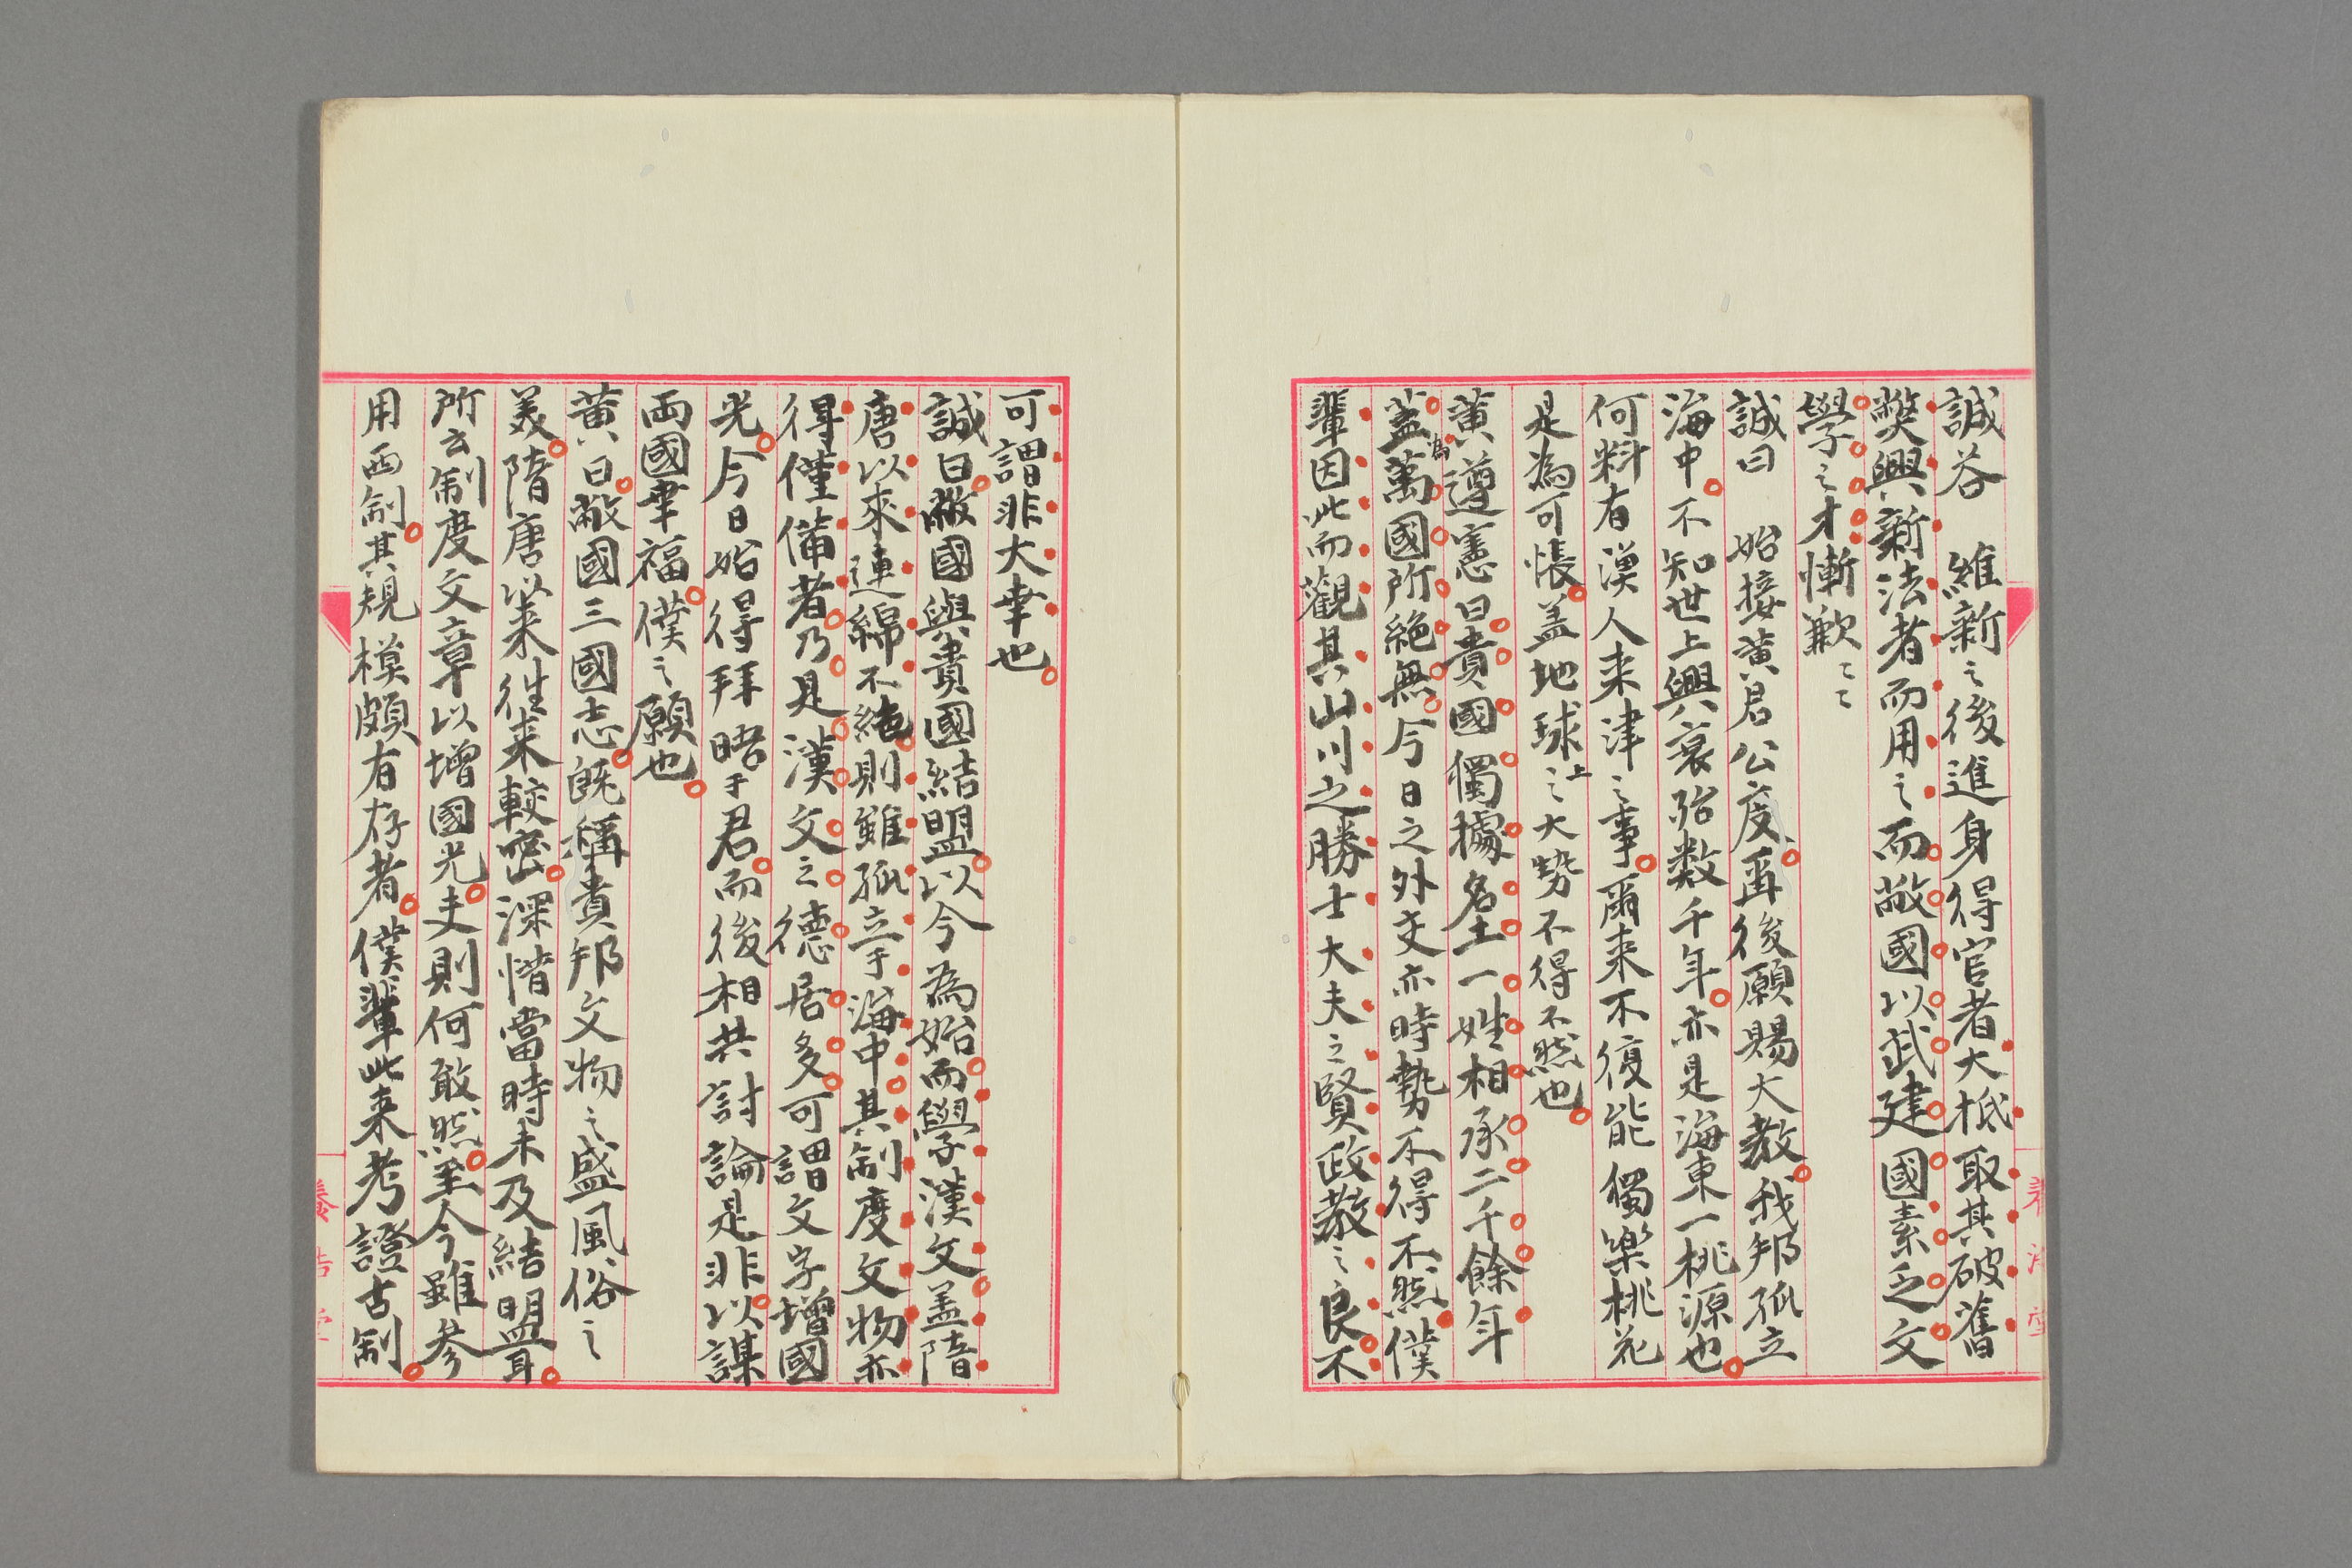 誠荅　維新之後進身得官者大柢取其破舊
獘興新法者而用之而敝國以武建國素乏文
學之才慚歉〻〻
誠曰　始接黃君公度再後願賜大教我邦孤立
海中不知世上興衰殆数千年亦是海東一桃源也
何料有漢人来津之事爾来不復能獨樂桃花
是為可悵盖地球上之大勢不得不然也
黃遵憲曰貴國獨據名土一姓相承二千餘年
盖為萬國所絕無今日之外交亦時勢不得不然僕
輩因此而觀其山川之勝士大夫之賢政教之良不
可謂非大幸也
誠曰敝國與貴國結盟以今為始而學漢文盖隋
唐以來連綿不絕則雖孤立于海中其制度文物亦
得僅備者乃是漢文之德居多可謂文字增國
光今日始得拜晤于君而後相共討論是非以謀
両國幸福僕之願也
黃曰敝國三國志旣稱貴邦文物之盛風俗之
美隋唐以来往来較密深惜當時未及結盟耳
所云制度文章以增國光夫則何敢然至今雖参
用西制其規模頗有存者僕輩此来考證古制